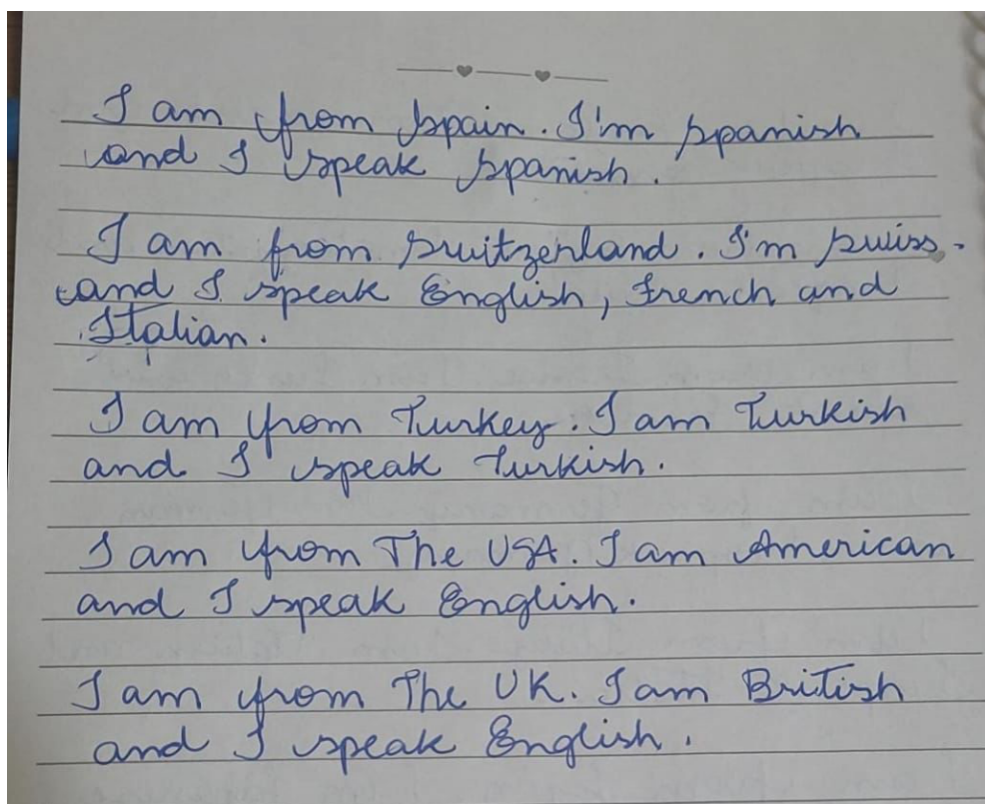 I am from Spain. I'm spanish
and I speak spanish.
I am from switzerland. I'm swiss.
and I speak English, French and
Italian.
I am from Turkey. I am Turkish
and I speak Turkish.
I am from The USA. I am American
and I speak English.
I am from The UK. I am British
and I speak English.